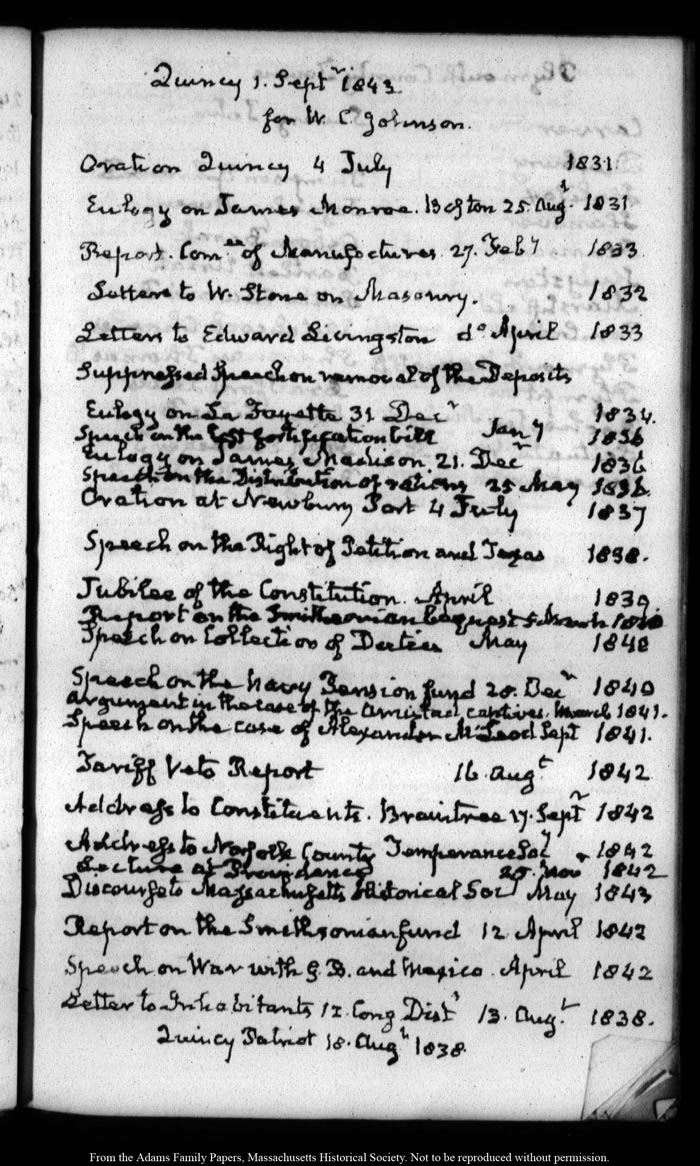 Quincy 1. Septr 1843
for W. C. Johnson.
Oration Quincy 4 July 1831.
Eulogy on James Monroe. Boston 25. Augt. 1831
Report. Comee of Manufactures 27. Feby 1833
Letters to W. Stone on Masonry. 1832
Letters to Edward Livingston do April 1833
Suppressed Speech on removal of the Deposits
Eulogy on La Fayette 31 Decr 1834.
Speech on the lost fortification bill Jany 1836
Eulogy on James Madison. 21. Decr 1836
Speech on the Distribution of rations 25 May 1836.
Oration at Newbury Port 4 July 1837
Speech on the Right of Petition and Texas 1838.
Jubilee of the Constitution. April 1839
Report on the Smithsonian bequest 5 March 1840
Speech on Collection of Duties May 1840
Speech on the Navy Pension fund 28. Decr 1840
Argument in the case of the Amistad captives. March 1841.
Speech on the case of Alexander McLeod Sept 1841.
Tariff Veto Report 16. Augt 1842
Address to Constituents. Braintree 17. Septr 1842
Address to Norfolk County Temperance Socy 1842
Lecture at Providence 25. Nov 1842
Discourse to Massachusetts Historical Soc May 1843
Report on the Smithsonian fund 12 April 1842
Speech on War with G. B. and Mexico. April 1842
Letter to Inhabitants 12. Cong Distt 13. Augt. 1838.
Quincy Patriot 18. Augt 1838.
From the Adams Family Papers, Massachusetts Historical Society. Not to be reproduced without permission.